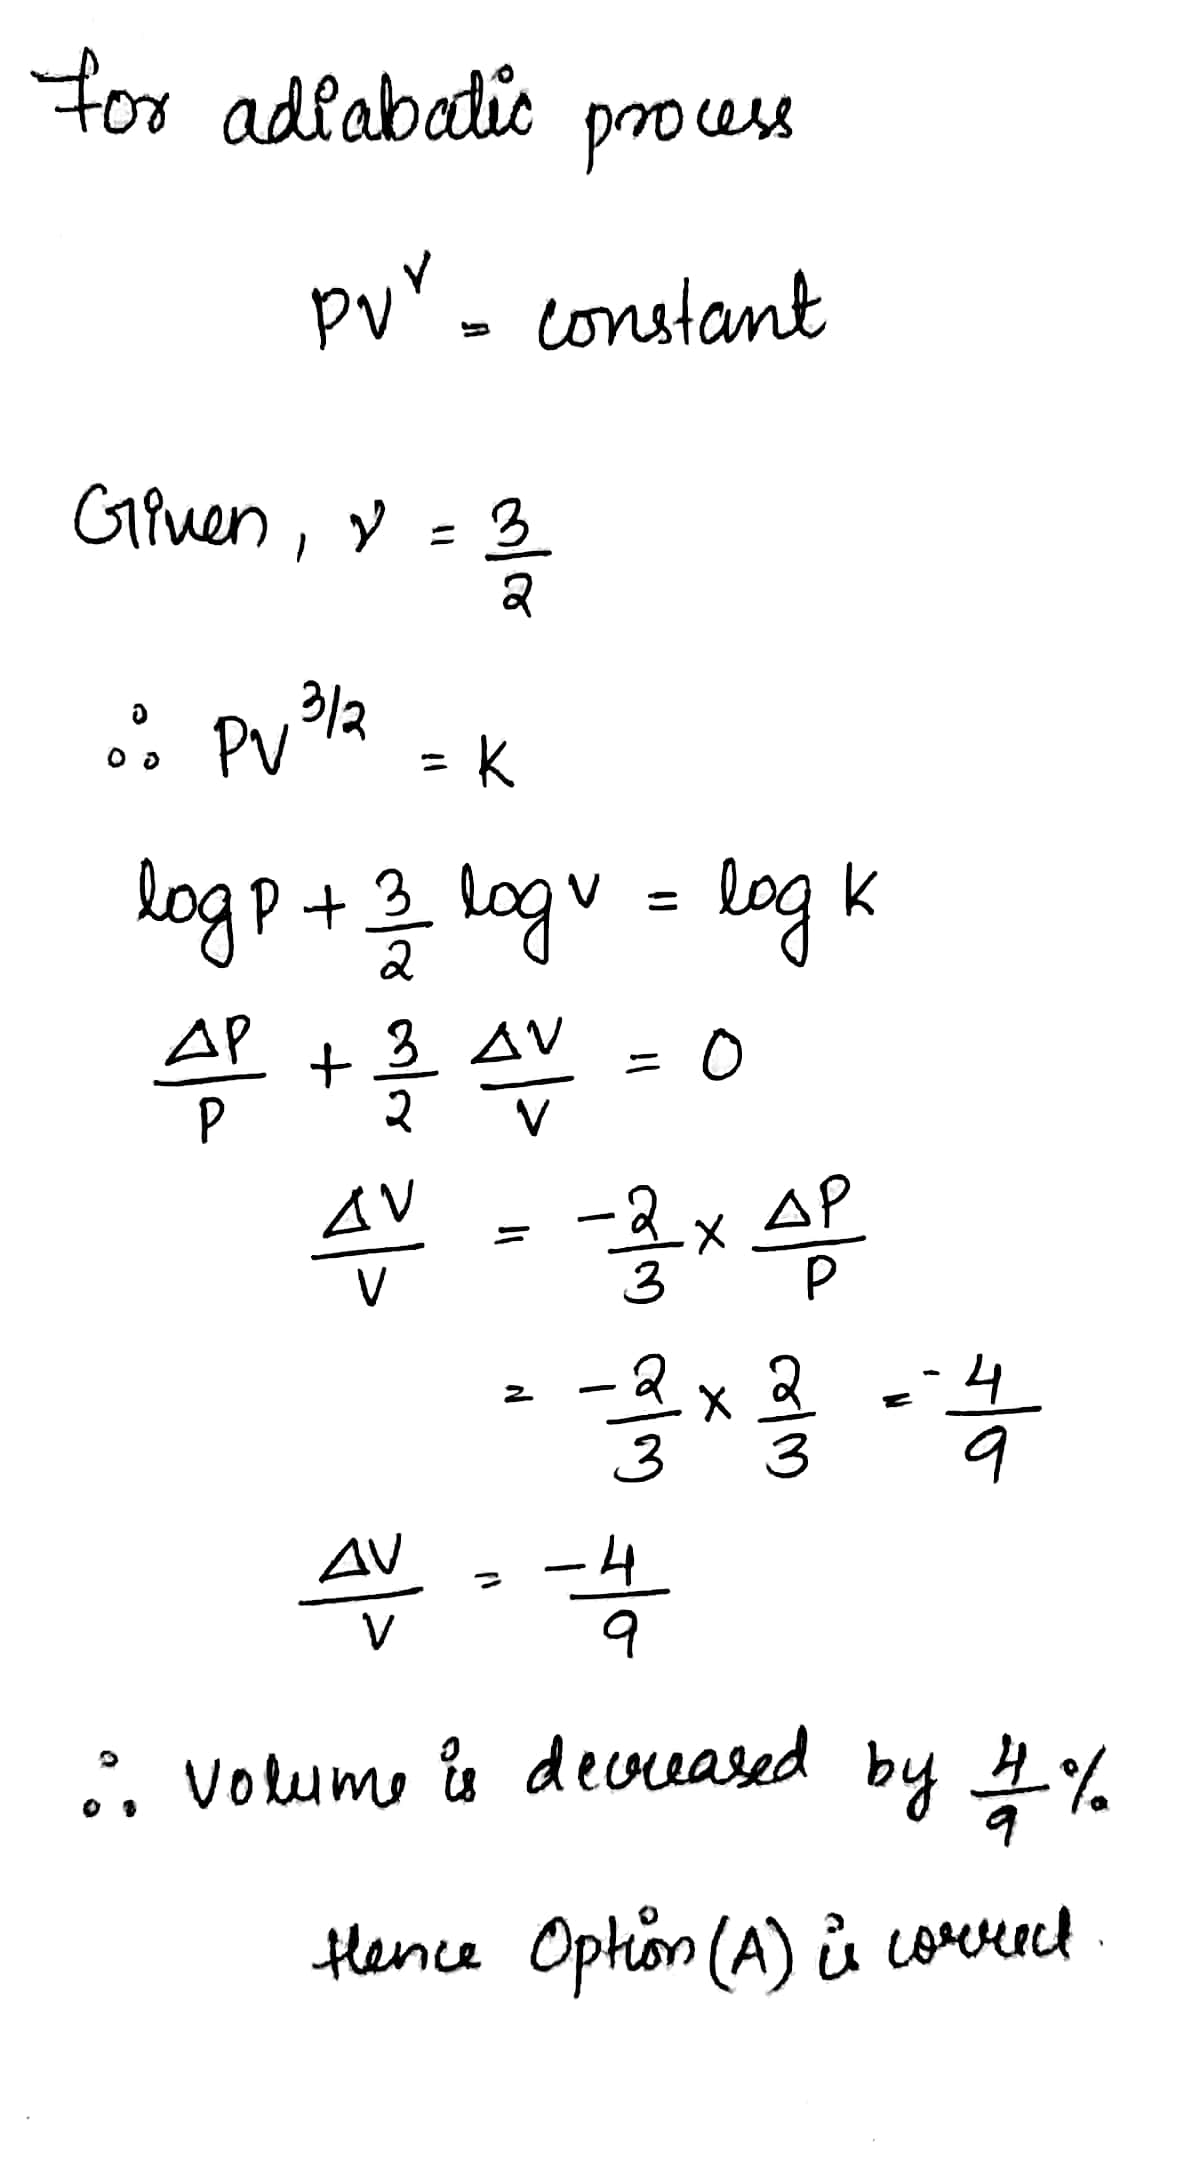 For adiabatic process
PV^γ = constant
Given, γ = 3/2
∴ PV^3/2 = K
log P + 3/2 log V = log K
ΔP/P + 3/2 ΔV/V = 0
ΔV/V = -2/3 × ΔP/P
= -2/3 × 2/3 = -4/9
ΔV/V = -4/9
∴ Volume is decreased by 4/9 %
Hence Option (A) is correct.